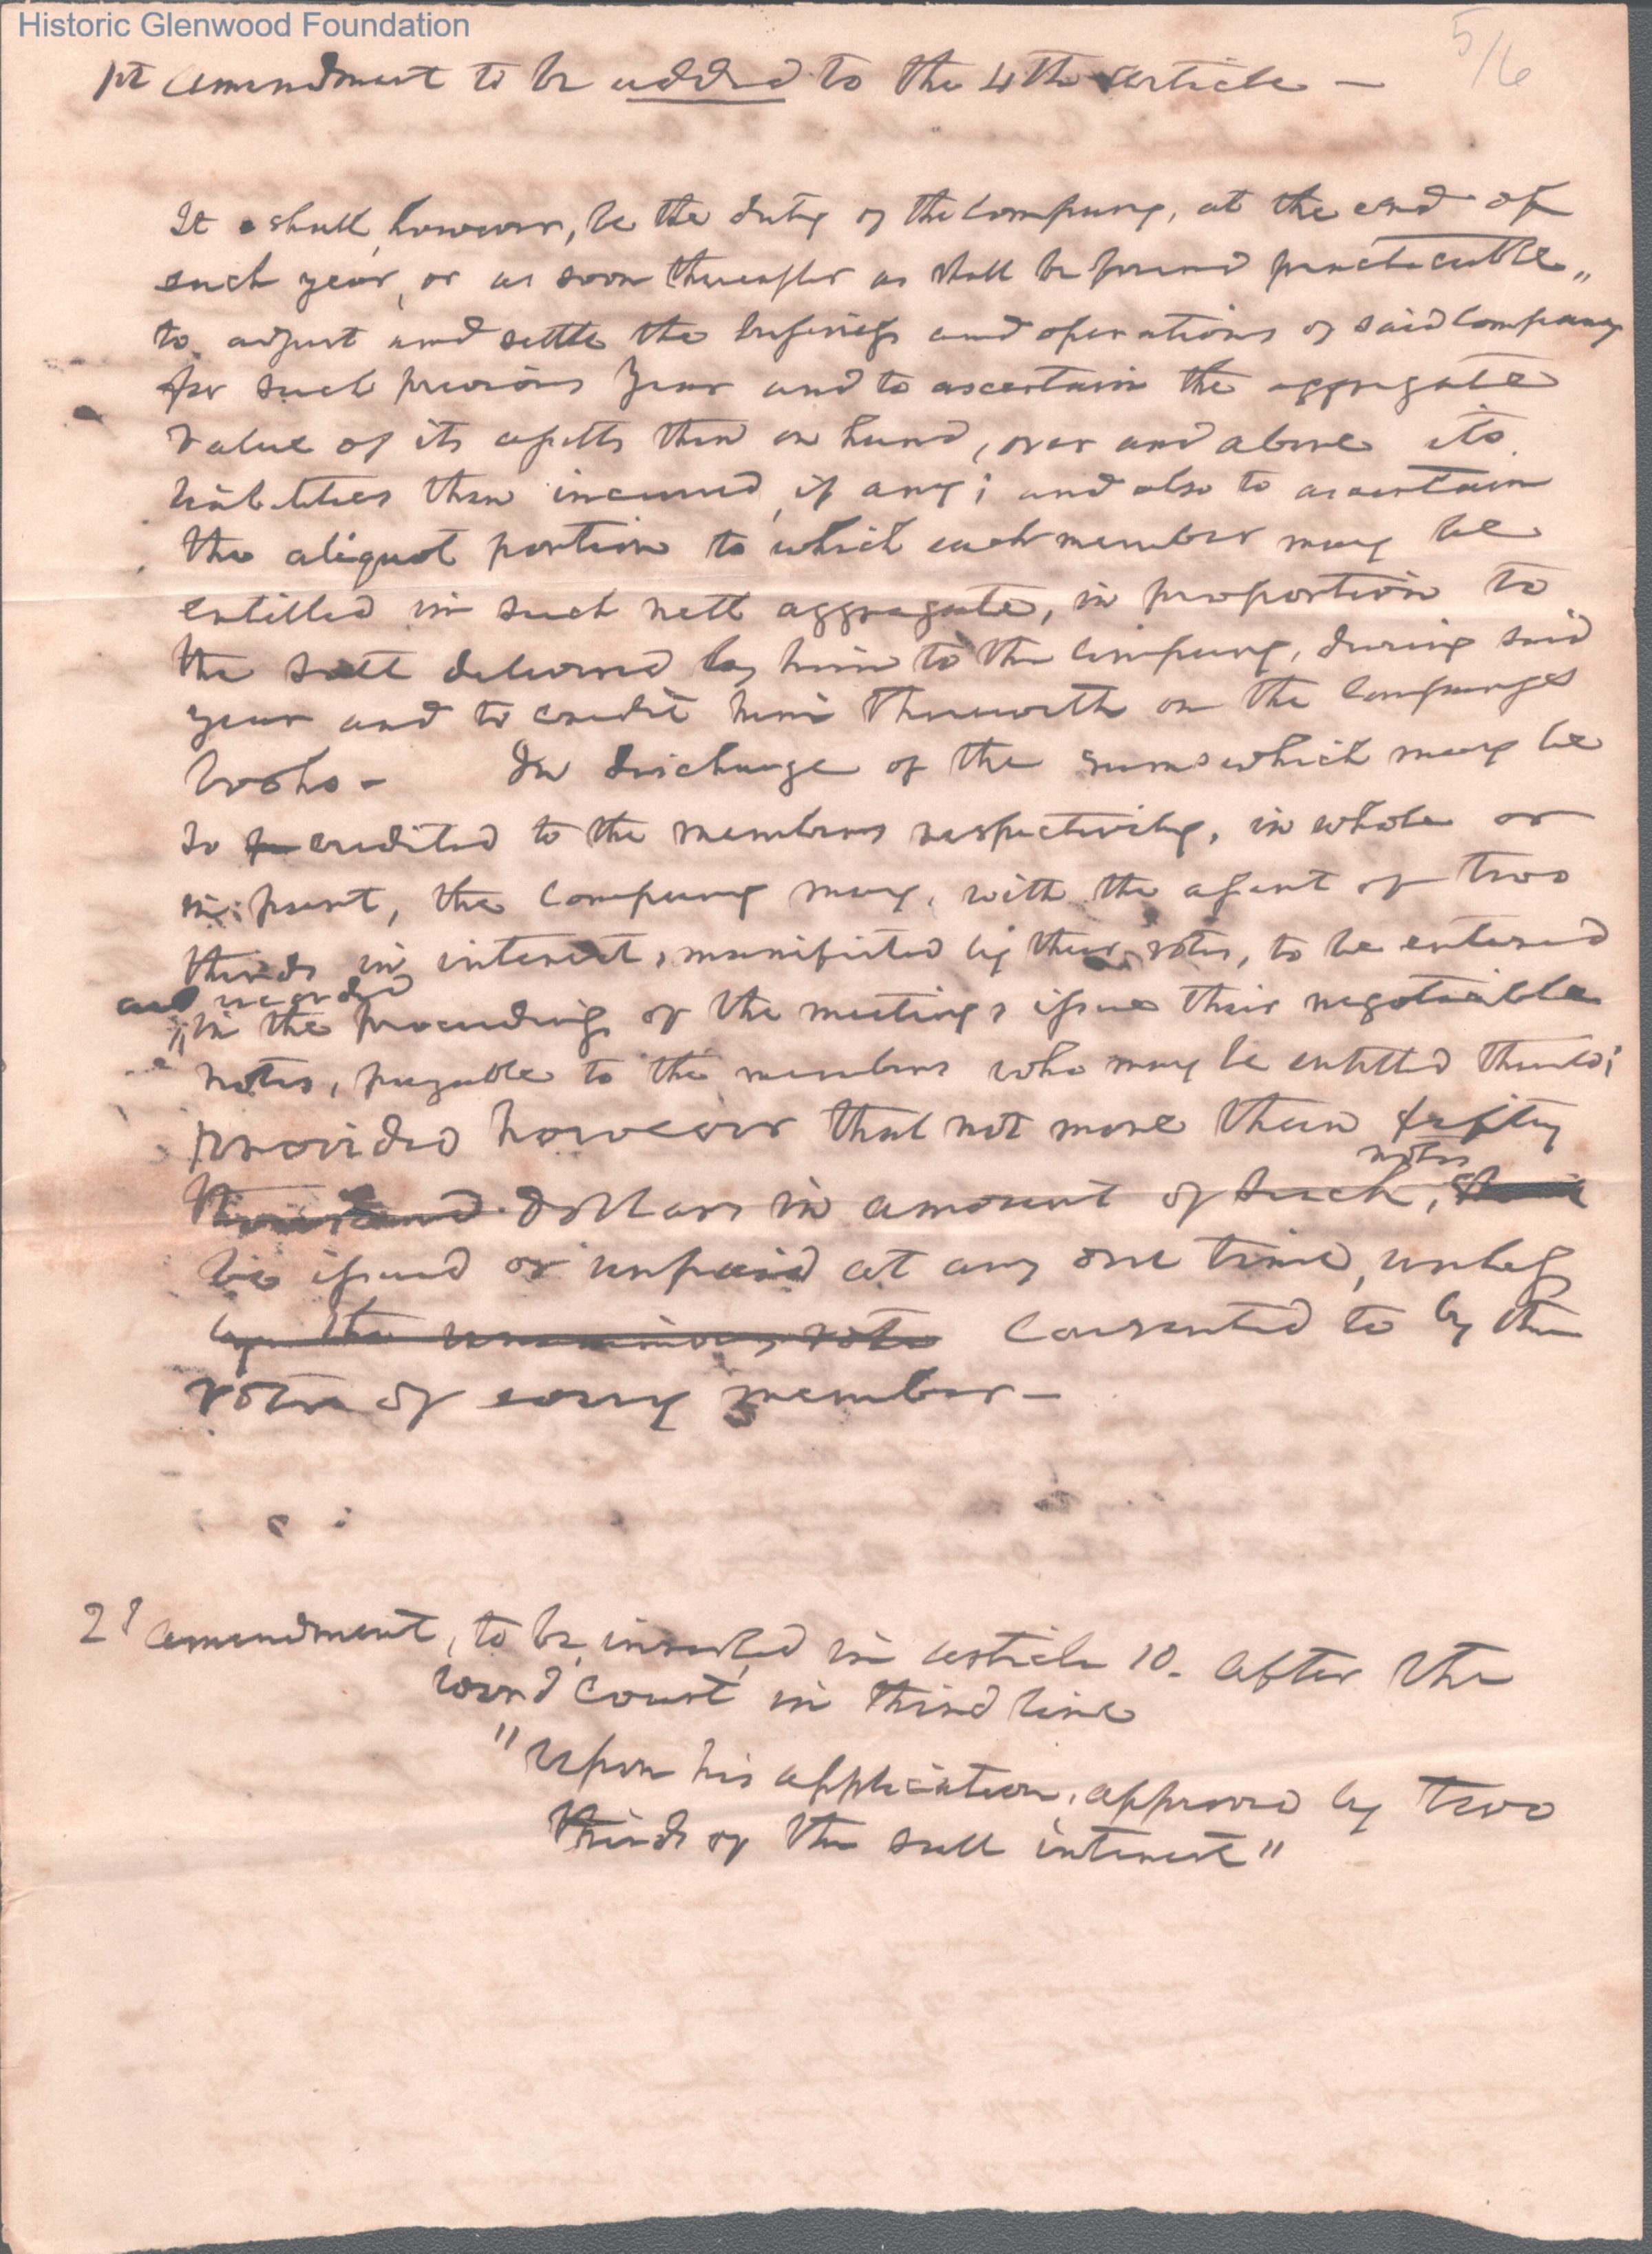 Historic Glenwood Foundation
5/6
1st amendment to be added to the 4th article —
It shall, however, be the duty of the Company, at the end of
each year, or as soon thereafter as shall be found practicable,
to adjust and settle the business and operations of said Company
for such previous year and to ascertain the aggregate
value of its assetts then on hand, over and above its
liabilities then incurred, if any; and also to ascertain
the aliquot portion to which each member may be
entitled in such nett aggregate, in proportion to
the salt delivered by him to the Company, during said
year and to credit him therewith on the Companys
books - In discharge of the sums which may be
so credited to the members respectively, in whole or
in part, the Company may, with the assent of two
thirds in interest, manifested by their votes, to be entered
and recorded
in the proceedings of the meetings issue their negotiable
notes, payable to the members who may be entitled thereto;
provided however that not more than fifty
notes
thousand dollars in amount of such,
be issued or unpaid at any one time, unless
by the unanimous vote consented to by the
votes of every member —
2d amendment, to be inserted in article 10. after the
word court in third line
"upon his application, approved by two
thirds of the salt interest"